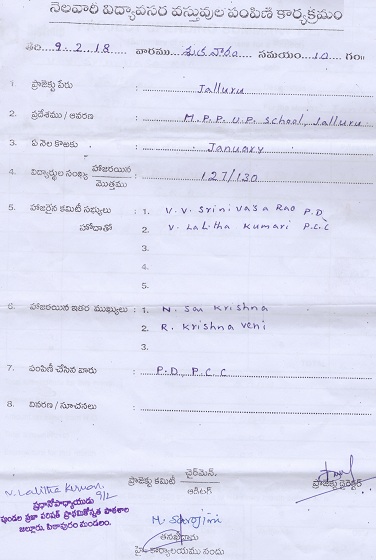 నెలవారీ విద్యావసర వస్తువుల పంపిణి కార్యక్రమం
తేది 9.2.18 వారము శుక్రవారం సమయం 10 గం॥
1. ప్రాజెక్టు పేరు : Jalluru
2. ప్రదేశము / ఆవరణ : M.P.P. U.P. School, Jalluru
3. ఏ నెల కొఱకు : January
4. విద్యార్థుల సంఖ్య హాజరయిన / మొత్తము : 127/130
5. హాజరైన కమిటీ సభ్యులు : 1. V. V. Srinivasa Rao P.D
హోదాతో 2. V. Lalitha Kumari P.C.C
3.
4.
5.
6. హాజరయిన ఇతర ముఖ్యులు : 1. N. Sai Krishna
2. R. Krishna Veni
3.
7. పంపిణీ చేసిన వారు : P.D, P.C.C
8. వివరణ / సూచనలు :
ప్రాజెక్టు కమిటీ ఛైర్మెన్. / ఆడిటర్
ప్రాజెక్టు డైరెక్టర్
N. Lalitha Kumari
9/2
ప్రధానోపాధ్యాయుడు
మండల ప్రజా పరిషత్ ప్రాథమికోన్నత పాఠశాల
జల్లూరు, పిఠాపురం మండలం.
M. Sarojini
తనిఖీదారు
హై కార్యాలయము నందు